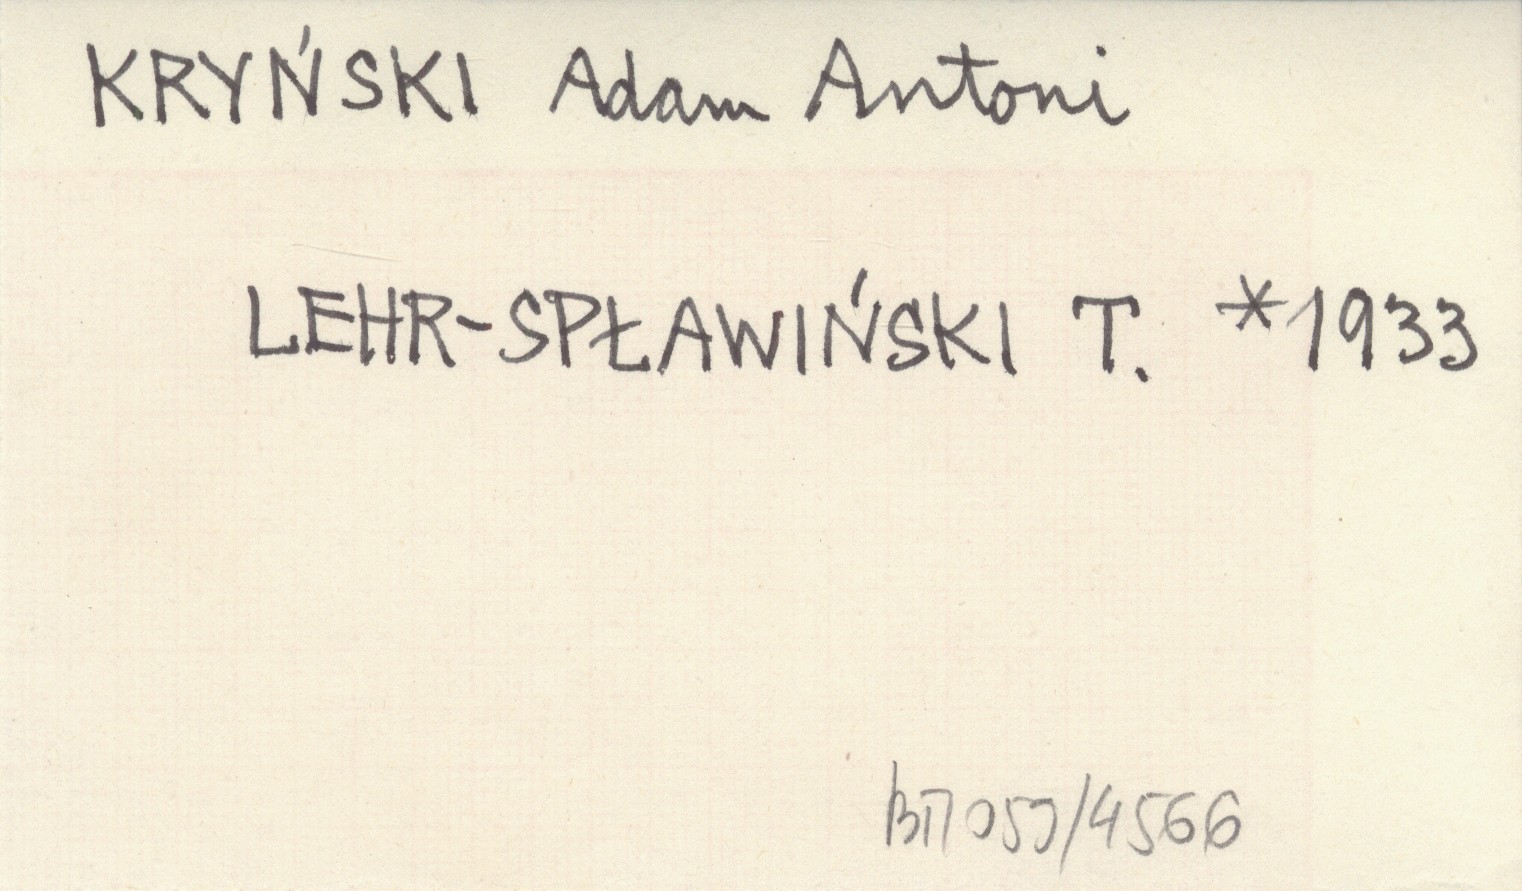 KRYŃSKI Adam Antoni
LEHR-SPŁAWIŃSKI T. *1933
/4566